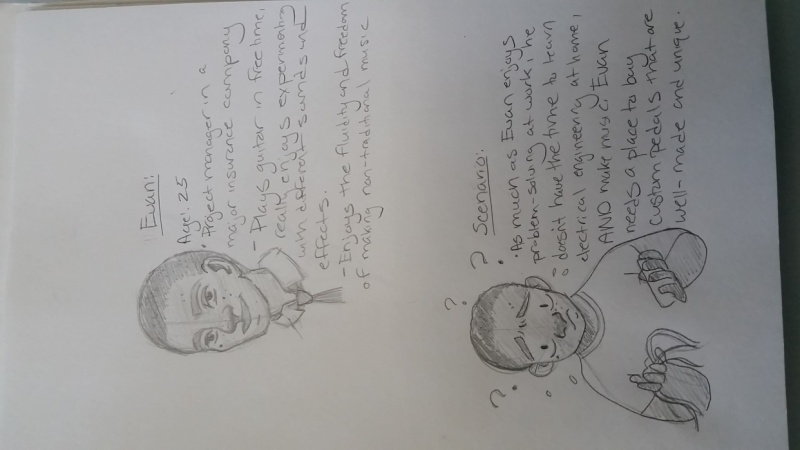 Evan:
Age: 25
• Project manager in a
major insurance company
- Plays guitar in free time,
really enjoys experimenting
with different sounds and
effects.
- Enjoys the fluidity and freedom
of making non-traditional music
Scenario:
• As much as Evan enjoys
problem-solving at work, he
doesn't have the time to learn
electrical engineering at home,
AND make music. Evan
needs a place to buy
custom pedals that are
well-made and unique.
? ? ?